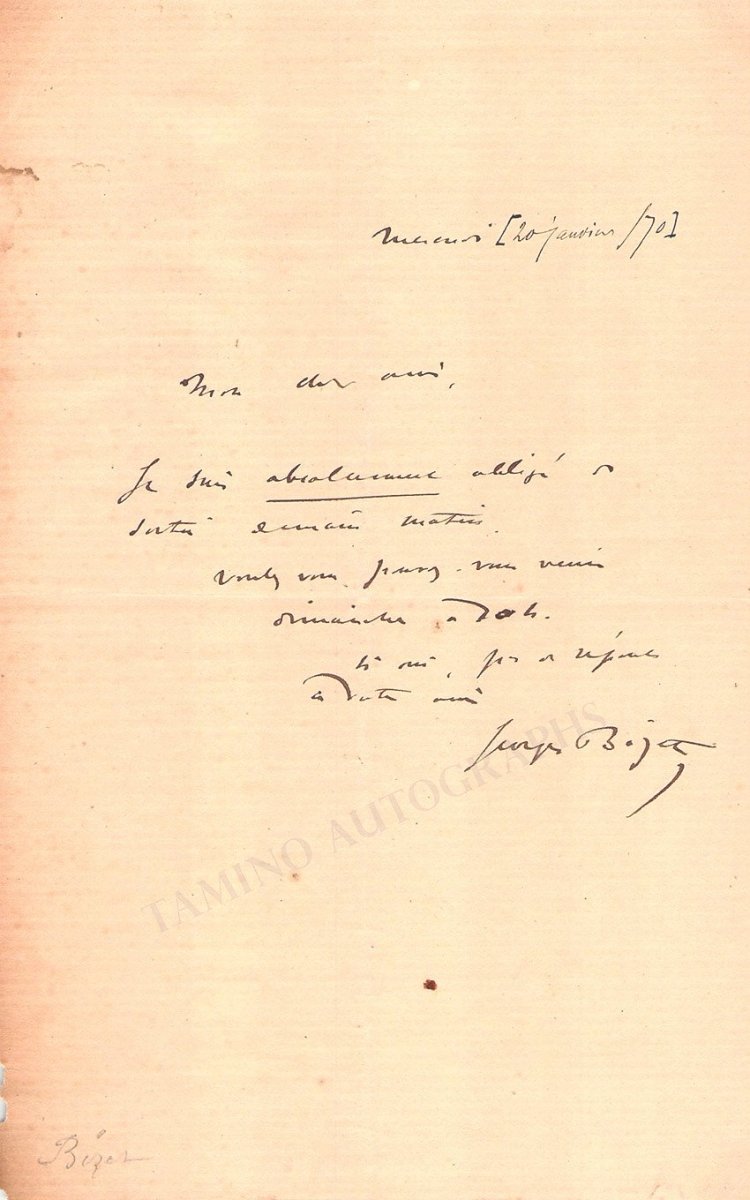 mercredi [20 janvier /70]
Mon cher ami,
Je suis absolument obligé de
sortir demain matin.
voulez vous, pouvez-vous venir
dimanche à 10h.
si oui, pas de réponse
à vous ami
Georges Bizet
TAMINO AUTOGRAPHS
Bizet